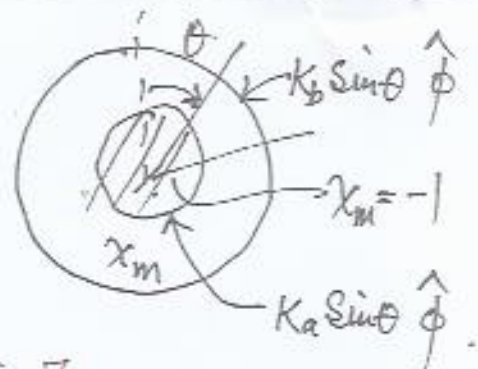 θ
K_b Sinθ φ̂
χ_m = -1
χ_m
K_a Sinθ φ̂